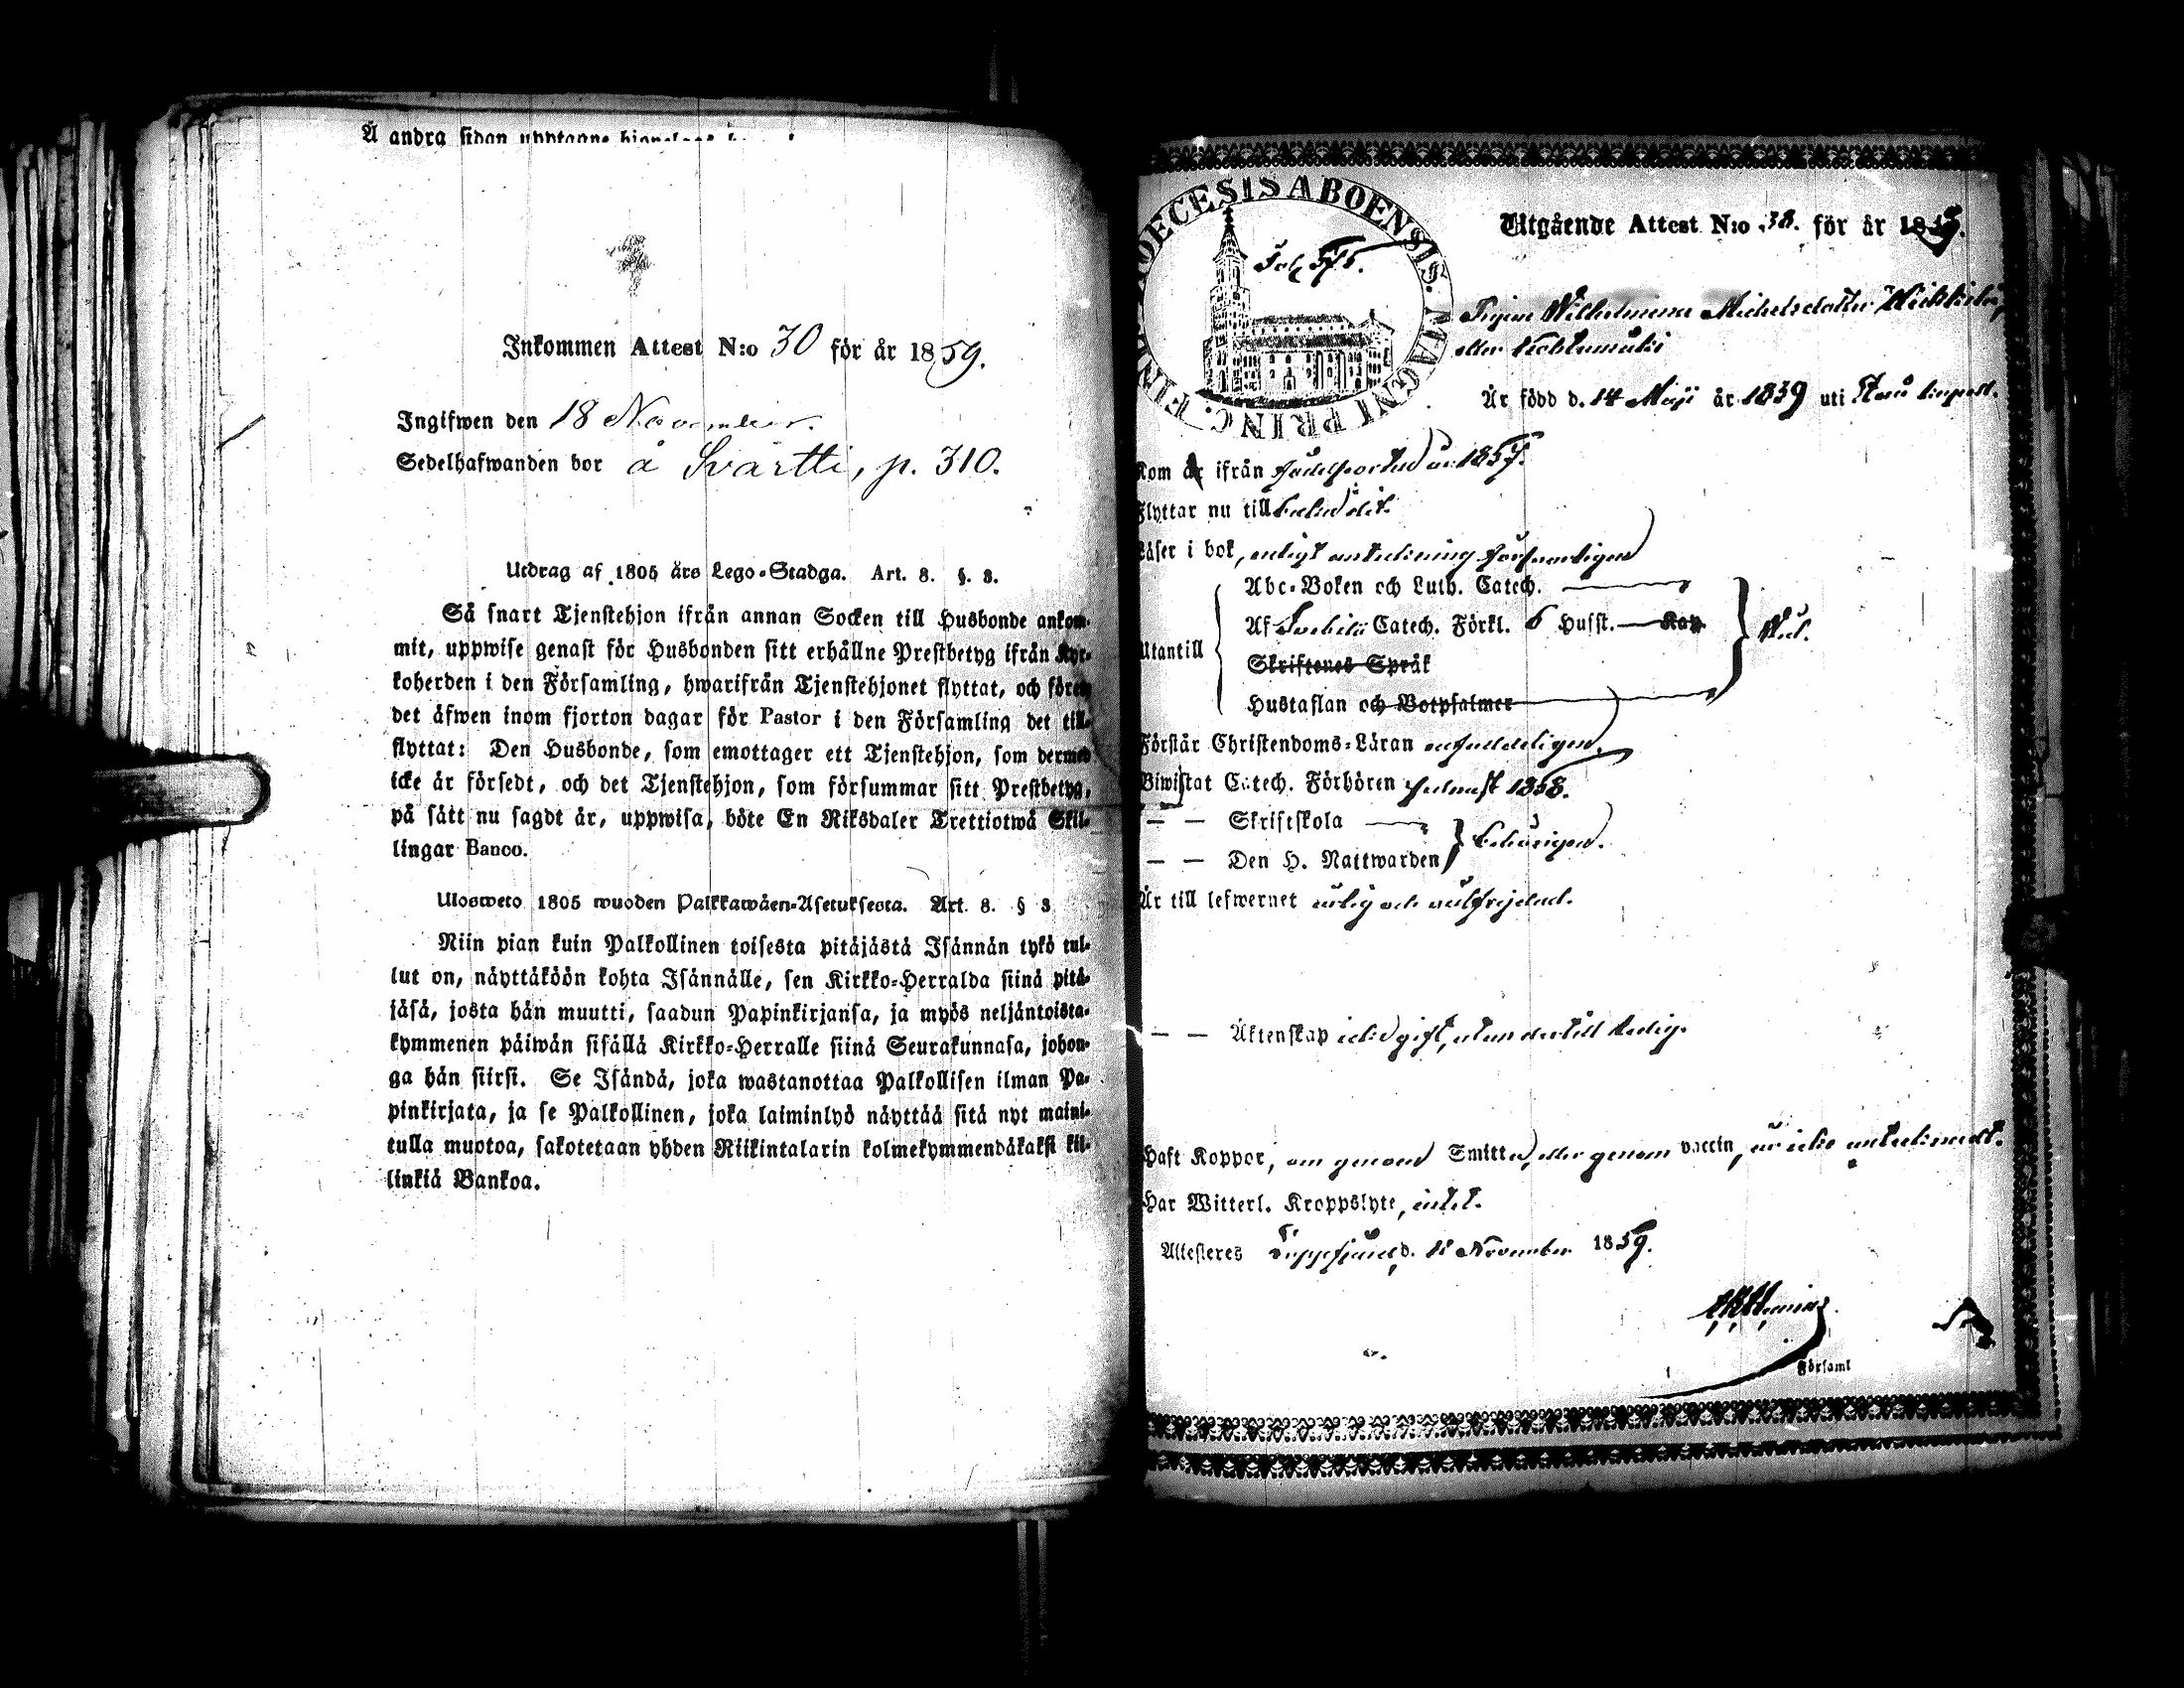 Å andra sidan upptagne
Inkommen Attest N:o 30 för år 1859.
Ingifwen den 18 November.
Sedelhafwanden bor å Svärtti, p. 310.
Utdrag af 1805 års Lego-Stadga. Art. 8. §. 3.
Så snart Tjenstehjon ifrån annan Socken till Husbonde ankom-
mit, uppwise genast för Husbonden sitt erhållne Prestbetyg ifrån Kyr-
koherden i den Församling, hwarifrån Tjenstehjonet flyttat, och förete
det äfwen inom fjorton dagar för Pastor i den Församling det till-
flyttat: Den Husbonde, som emottager ett Tjenstehjon, som dermed
icke är försedt, och det Tjenstehjon, som försummar sitt Prestbetyg,
på sätt nu sagdt är, uppwisa, böte En Riksdaler Trettiotwå Skil-
lingar Banco.
Ulosweto 1805 wuoden Palkkawäen-Asetuksesta. Art. 8. § 3
Niin pian kuin Palkollinen toisesta pitäjästä Isännän tykö tul-
lut on, näyttäköön kohta Isännälle, sen Kirkko-Herralda siinä pitä-
jäsä, josta hän muutti, saadun Papinkirjansa, ja myös neljäntoista-
kymmenen päiwän sisällä Kirkko-Herralle siinä Seurakunnasa, johon-
ga hän siirsi. Se Isändä, joka wastanottaa Palkollisen ilman Pa-
pinkirjata, ja se Palkollinen, joka laiminlyö näyttää sitä nyt maini-
tulla muotoa, sakotetaan yhden Riikintalarin kolmekymmendäkaksi kil-
linkiä Bankoa.
DIOECESIS ABOENSIS. MAGNI PRINC. FINL.
Utgående Attest N:o 38. för år 1859.
Pigan Wilhelmina Michelsdotter
eller
Är född d. 14 Maji år 1839 uti
Kom ifrån år 1857.
Flyttar nu till
Läser i bok, enligt anteckning försvarligen
Abc-Boken och Luth. Catech.
Utantill
Af Svebilii Catech. Förkl. 6 Husst. Kap.
Skriftenes Språk
Hustaflan och Botpsalmer
Förstår Christendoms-Läran
Biwistat Catech. Förhören 1858.
— — Skriftskola
— — Den H. Nattwarden behörigen.
Är till lefwernet ärlig och välfrejdad.
— — Äktenskap icke gift, utan dertill ledig.
Haft Koppor, om genom Smitta, eller genom vaccin, är icke antecknadt.
Har Witterl. Kroppslyte, intet.
Attesteres d. November 1859.
Församl